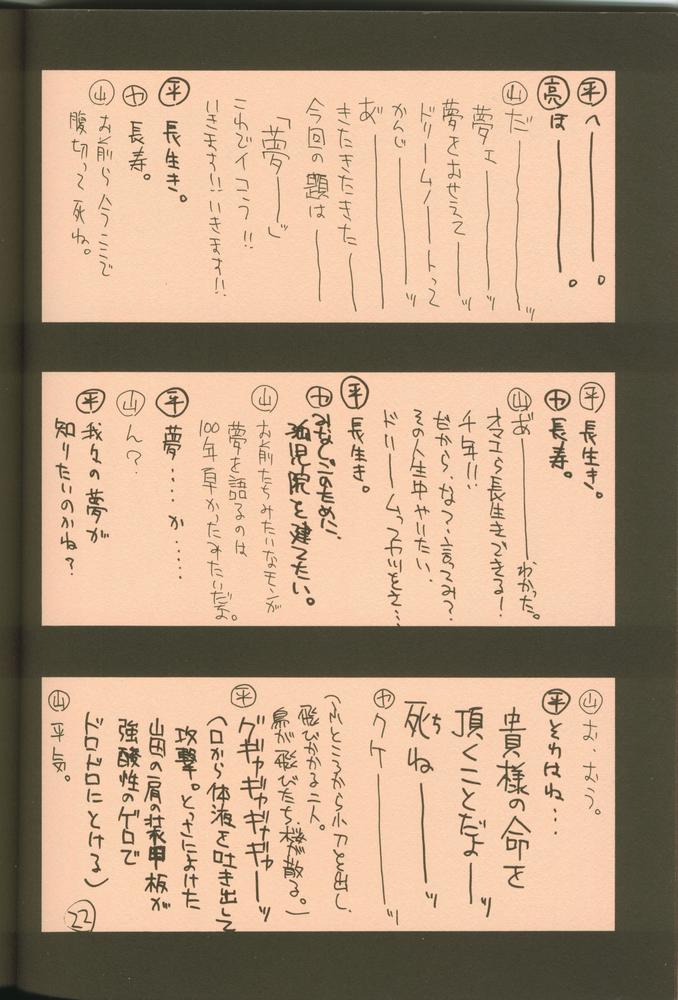 ㊥へ――――。
亮は――――。
山だ――――ッ
夢ェ――――ッ
夢をおせえて――ッ
ドリームノ――トって
かんじ――――ッ
あ゛――――
きたきたきた――
今回の題は――
「夢――」
これでイコう!!
いきます!!いきます!!
平 長生き。
ヤ 長寿。
山 お前ら今ここで
腹切って死ね。
平 長生き。
ヤ 長寿。
山 あ――――わかった。
オマエら長生きできる!
千年!!
だから、な?言ってみ?
その人生中やりたい、
ドリ――ムってヤツをさ…
平 長生き。
ヤ みなしごのために、
孤児院を建てたい。
山 お前たちみたいなモンが
夢を語るのは
100年早かったみたいだよ。
平 夢……か……
山 ん?
平 我々の夢が
知りたいのかね?
山 お、おう。
平 それはね…
貴様の命を
頂くことだよ――ッ
死ちね――――ッ
ヤ クケ――――ッ
(ふところから小刀を出し、
飛びかかる二人。
鳥が飛びたち、桜が散る。)
平 グギャギャギャギャ――ッ
(口から体液を吐き出して
攻撃。とっさによけた
山田の肩の装甲板が
強酸性のゲロで
ドロドロにとける)
山 平気。
22